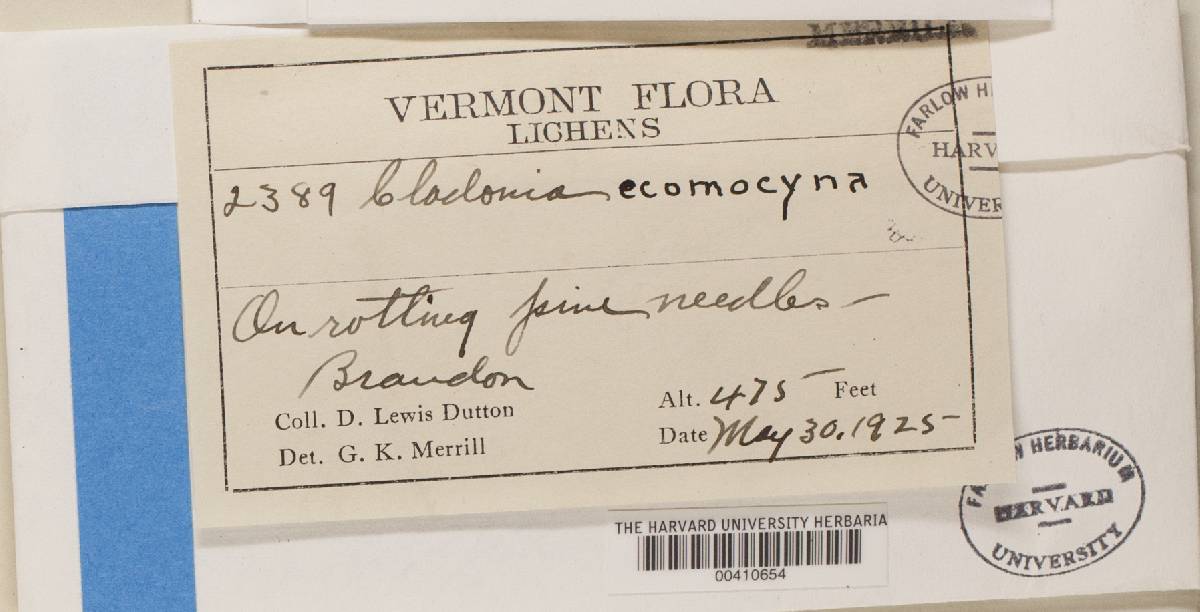 VERMONT FLORA
LICHENS
2389 Cladonia ecomocyna
On rotting pine needles —
Brandon
Coll. D. Lewis Dutton
Alt. 475 Feet
Det. G. K. Merrill
Date May 30, 1925
FARLOW H
HARV
UNIVER
THE HARVARD UNIVERSITY HERBARIA
00410654
FA W HERBARIUM
HARVARD
UNIVERSITY